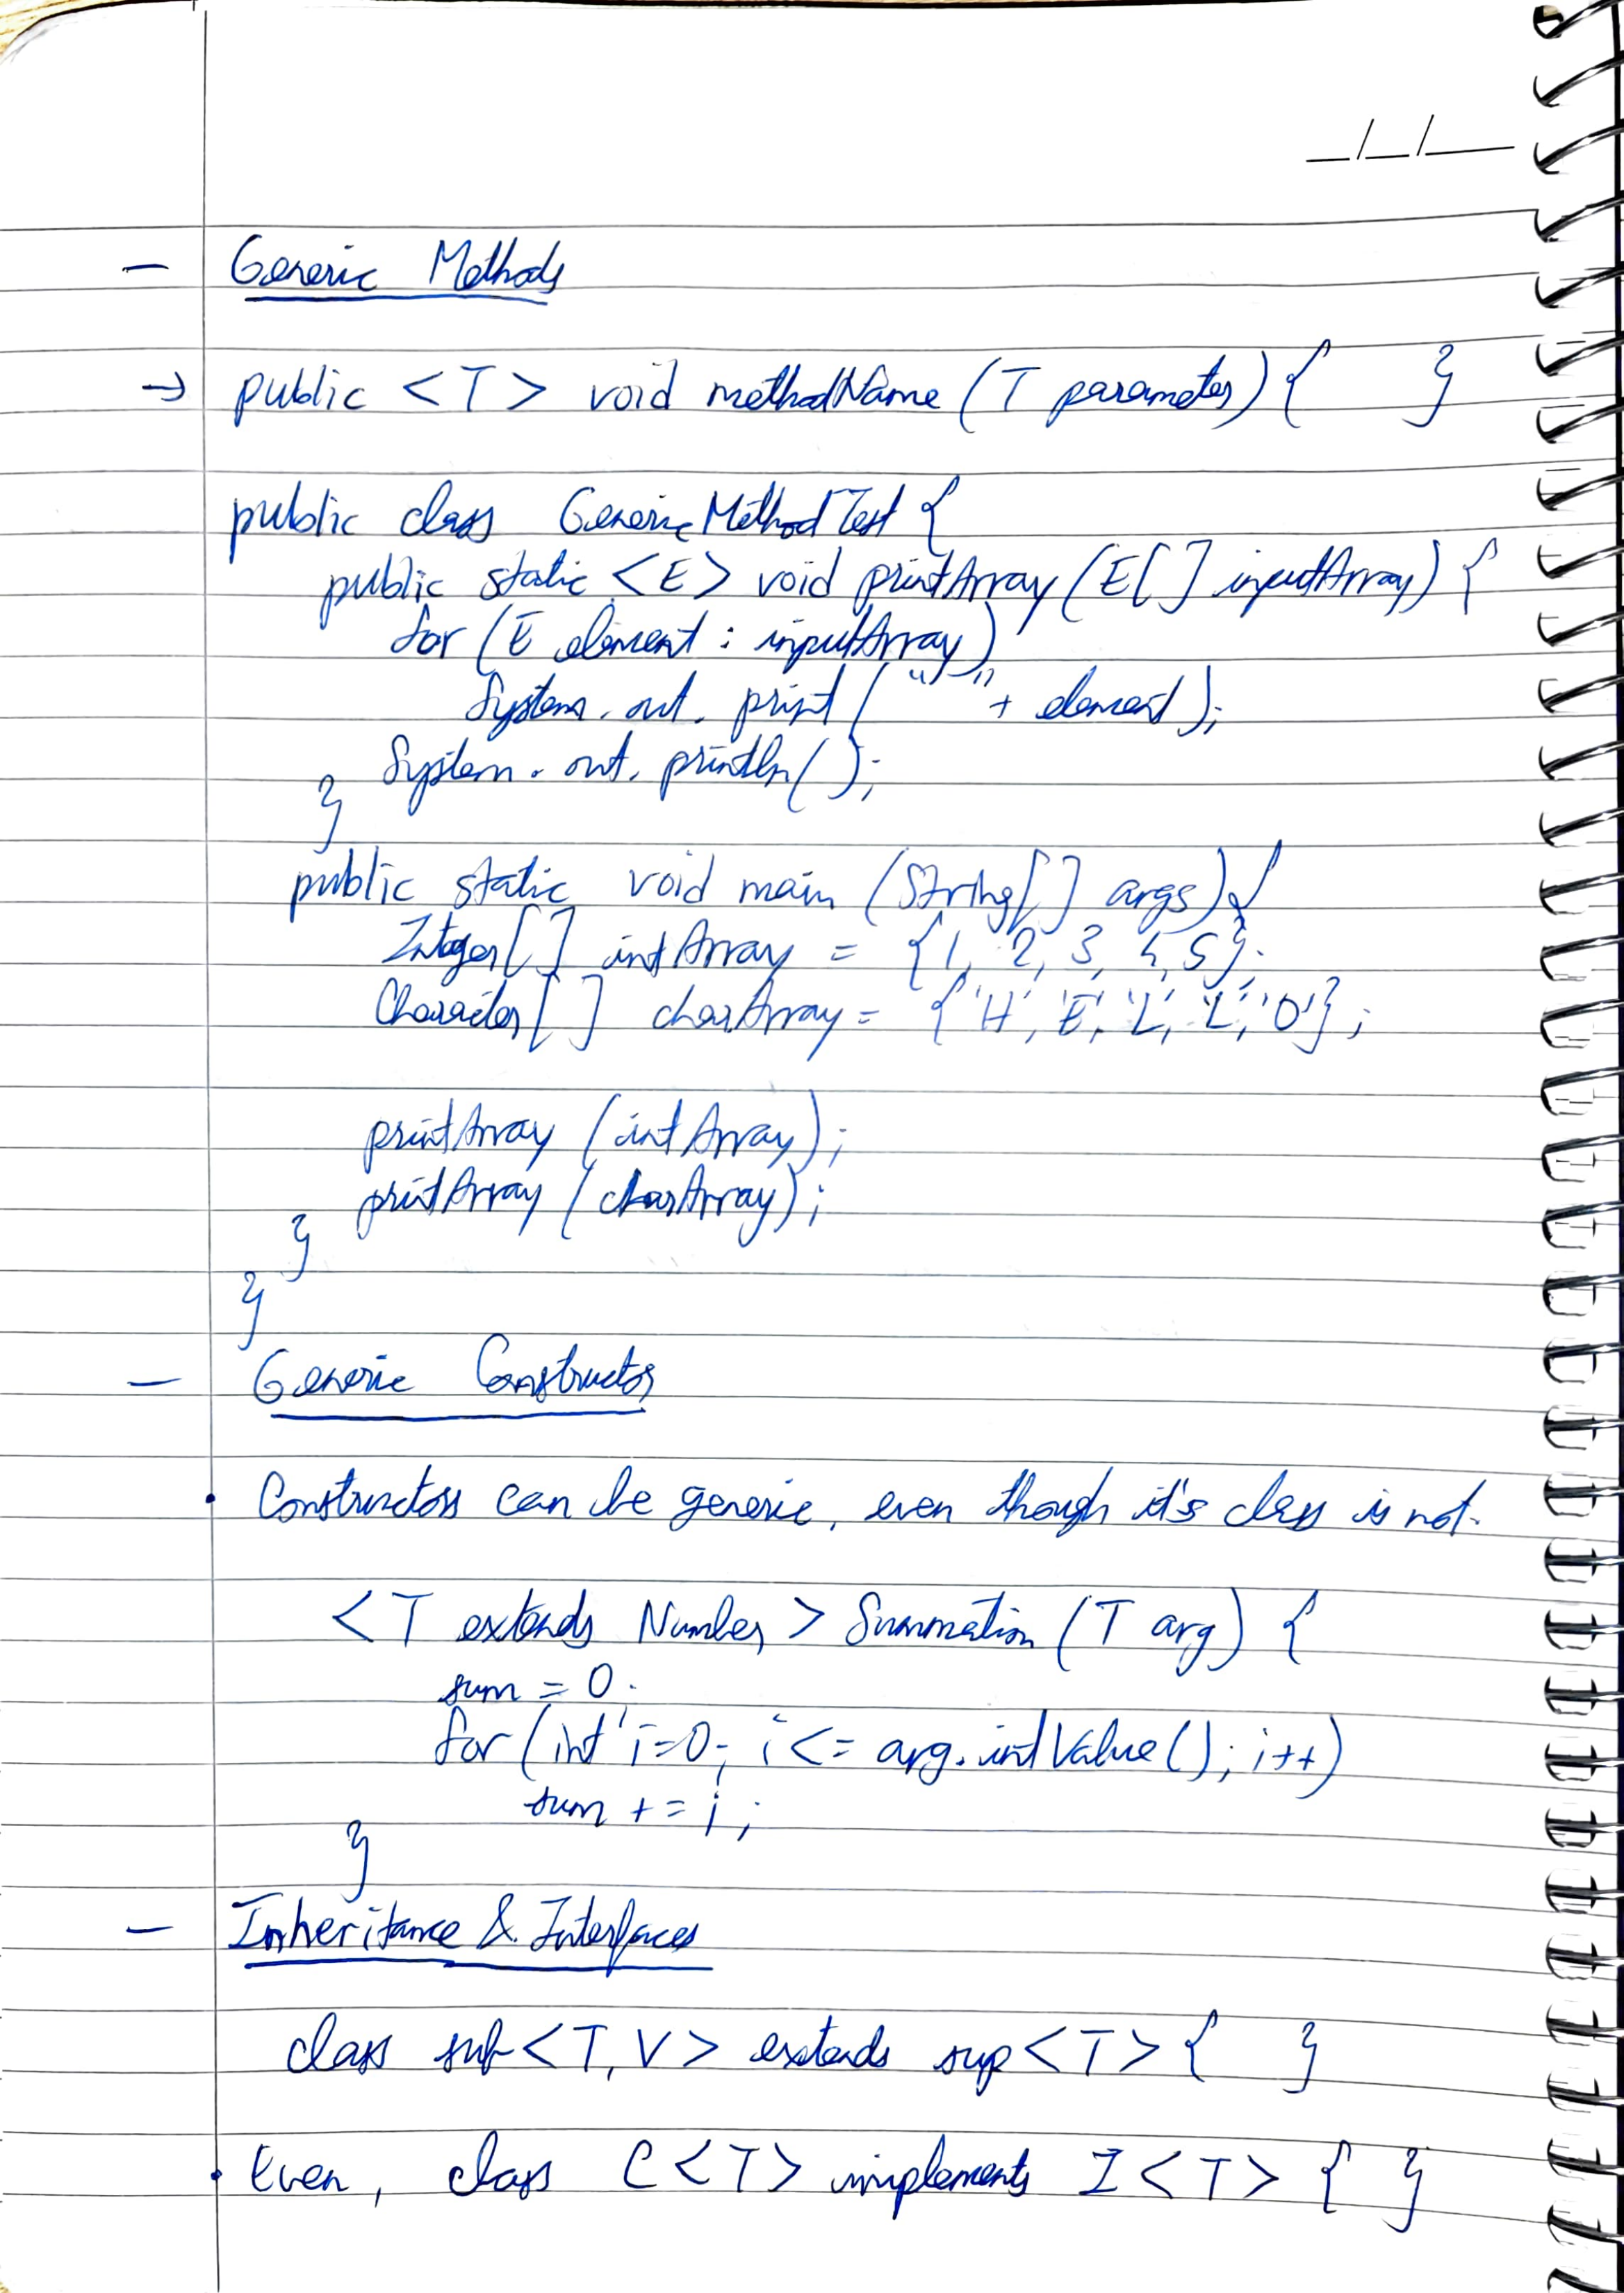 _/_/__
- Generic Methods
→ public <T> void methodName (T parameter) { }
public class GenericMethodTest {
public static <E> void printArray (E[] inputArray) {
for (E element : inputArray)
System.out.print(" " + element);
System.out.println();
}
public static void main (String[] args) {
Integer[] intArray = {1, 2, 3, 4, 5};
Character[] charArray = {'H', 'E', 'L', 'L', 'O'};
printArray (intArray);
printArray (charArray);
}
}
- Generic Constructor
• Constructors can be generic, even though it's class is not.
<T extends Number> Summation (T arg) {
sum = 0;
for (int i=0; i <= arg.intValue(); i++)
sum += i;
}
- Inheritance & Interfaces
class sub<T, V> extends sup<T> { }
• Even, class C<T> implements I<T> { }